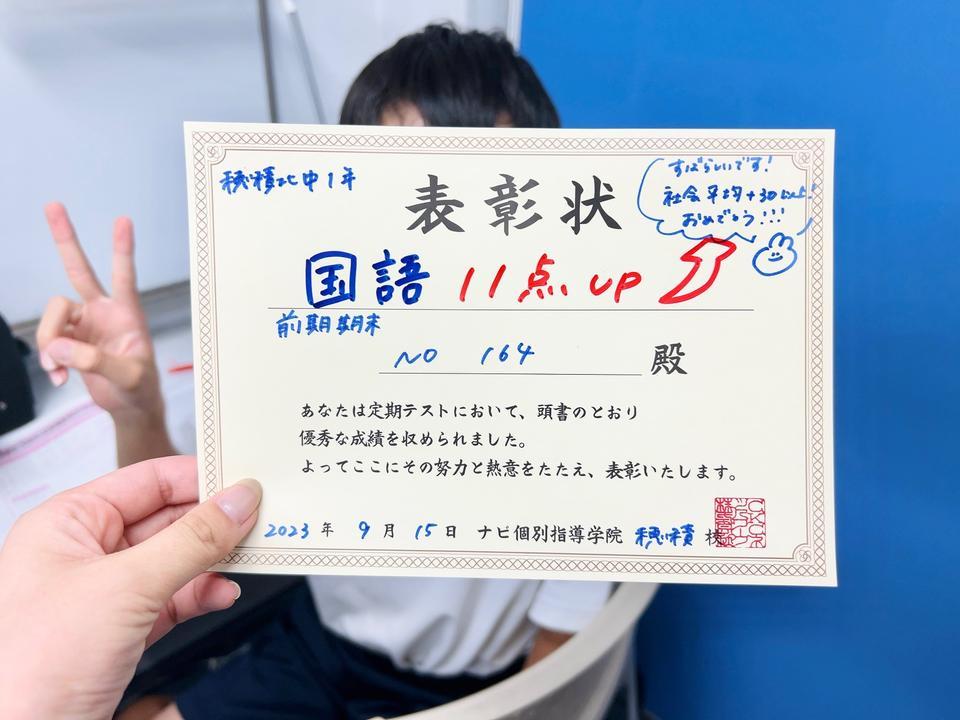 穂積北中1年
表彰状
すばらしいです!
社会平均+30以上!
おめでとう!!!
国語 11点UP
前期期末
NO 164 殿
あなたは定期テストにおいて、頭書のとおり
優秀な成績を収められました。
よってここにその努力と熱意をたたえ、表彰いたします。
2023年 9月 15日 ナビ個別指導学院 穂積 校